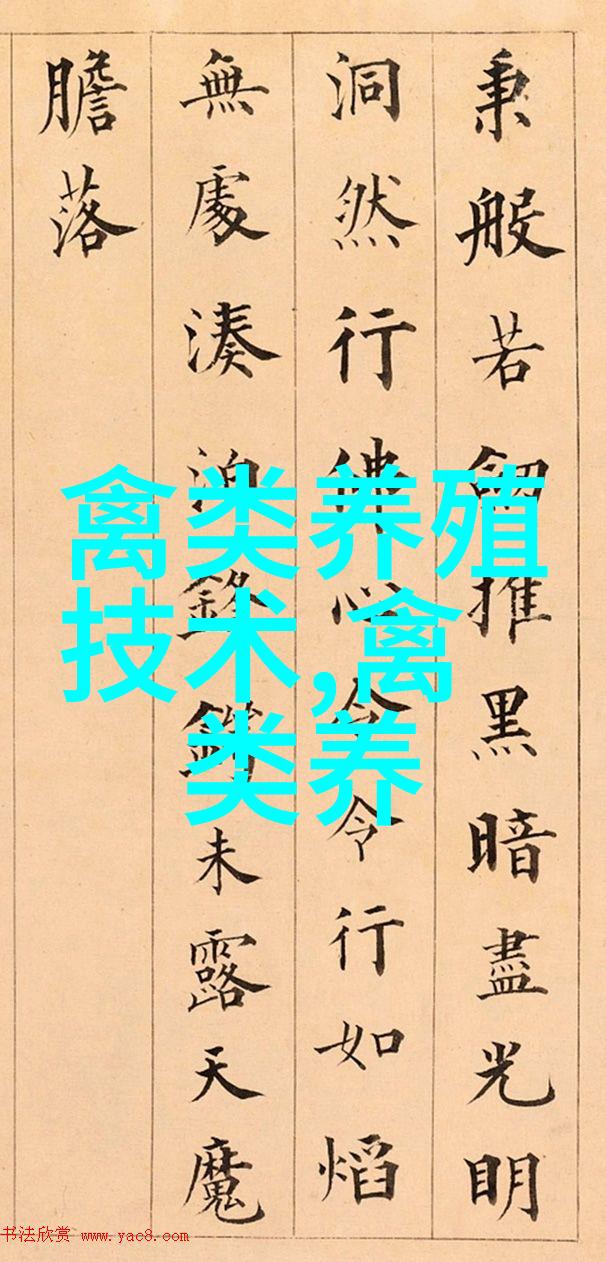 秉般若劒摧黑暗盡光明
洞然行佛心令令行如熖
無處湊泊鋒鋩未露天魔
膽落
禽类养殖
技术,禽
类养
书法欣赏 www.yac8.com